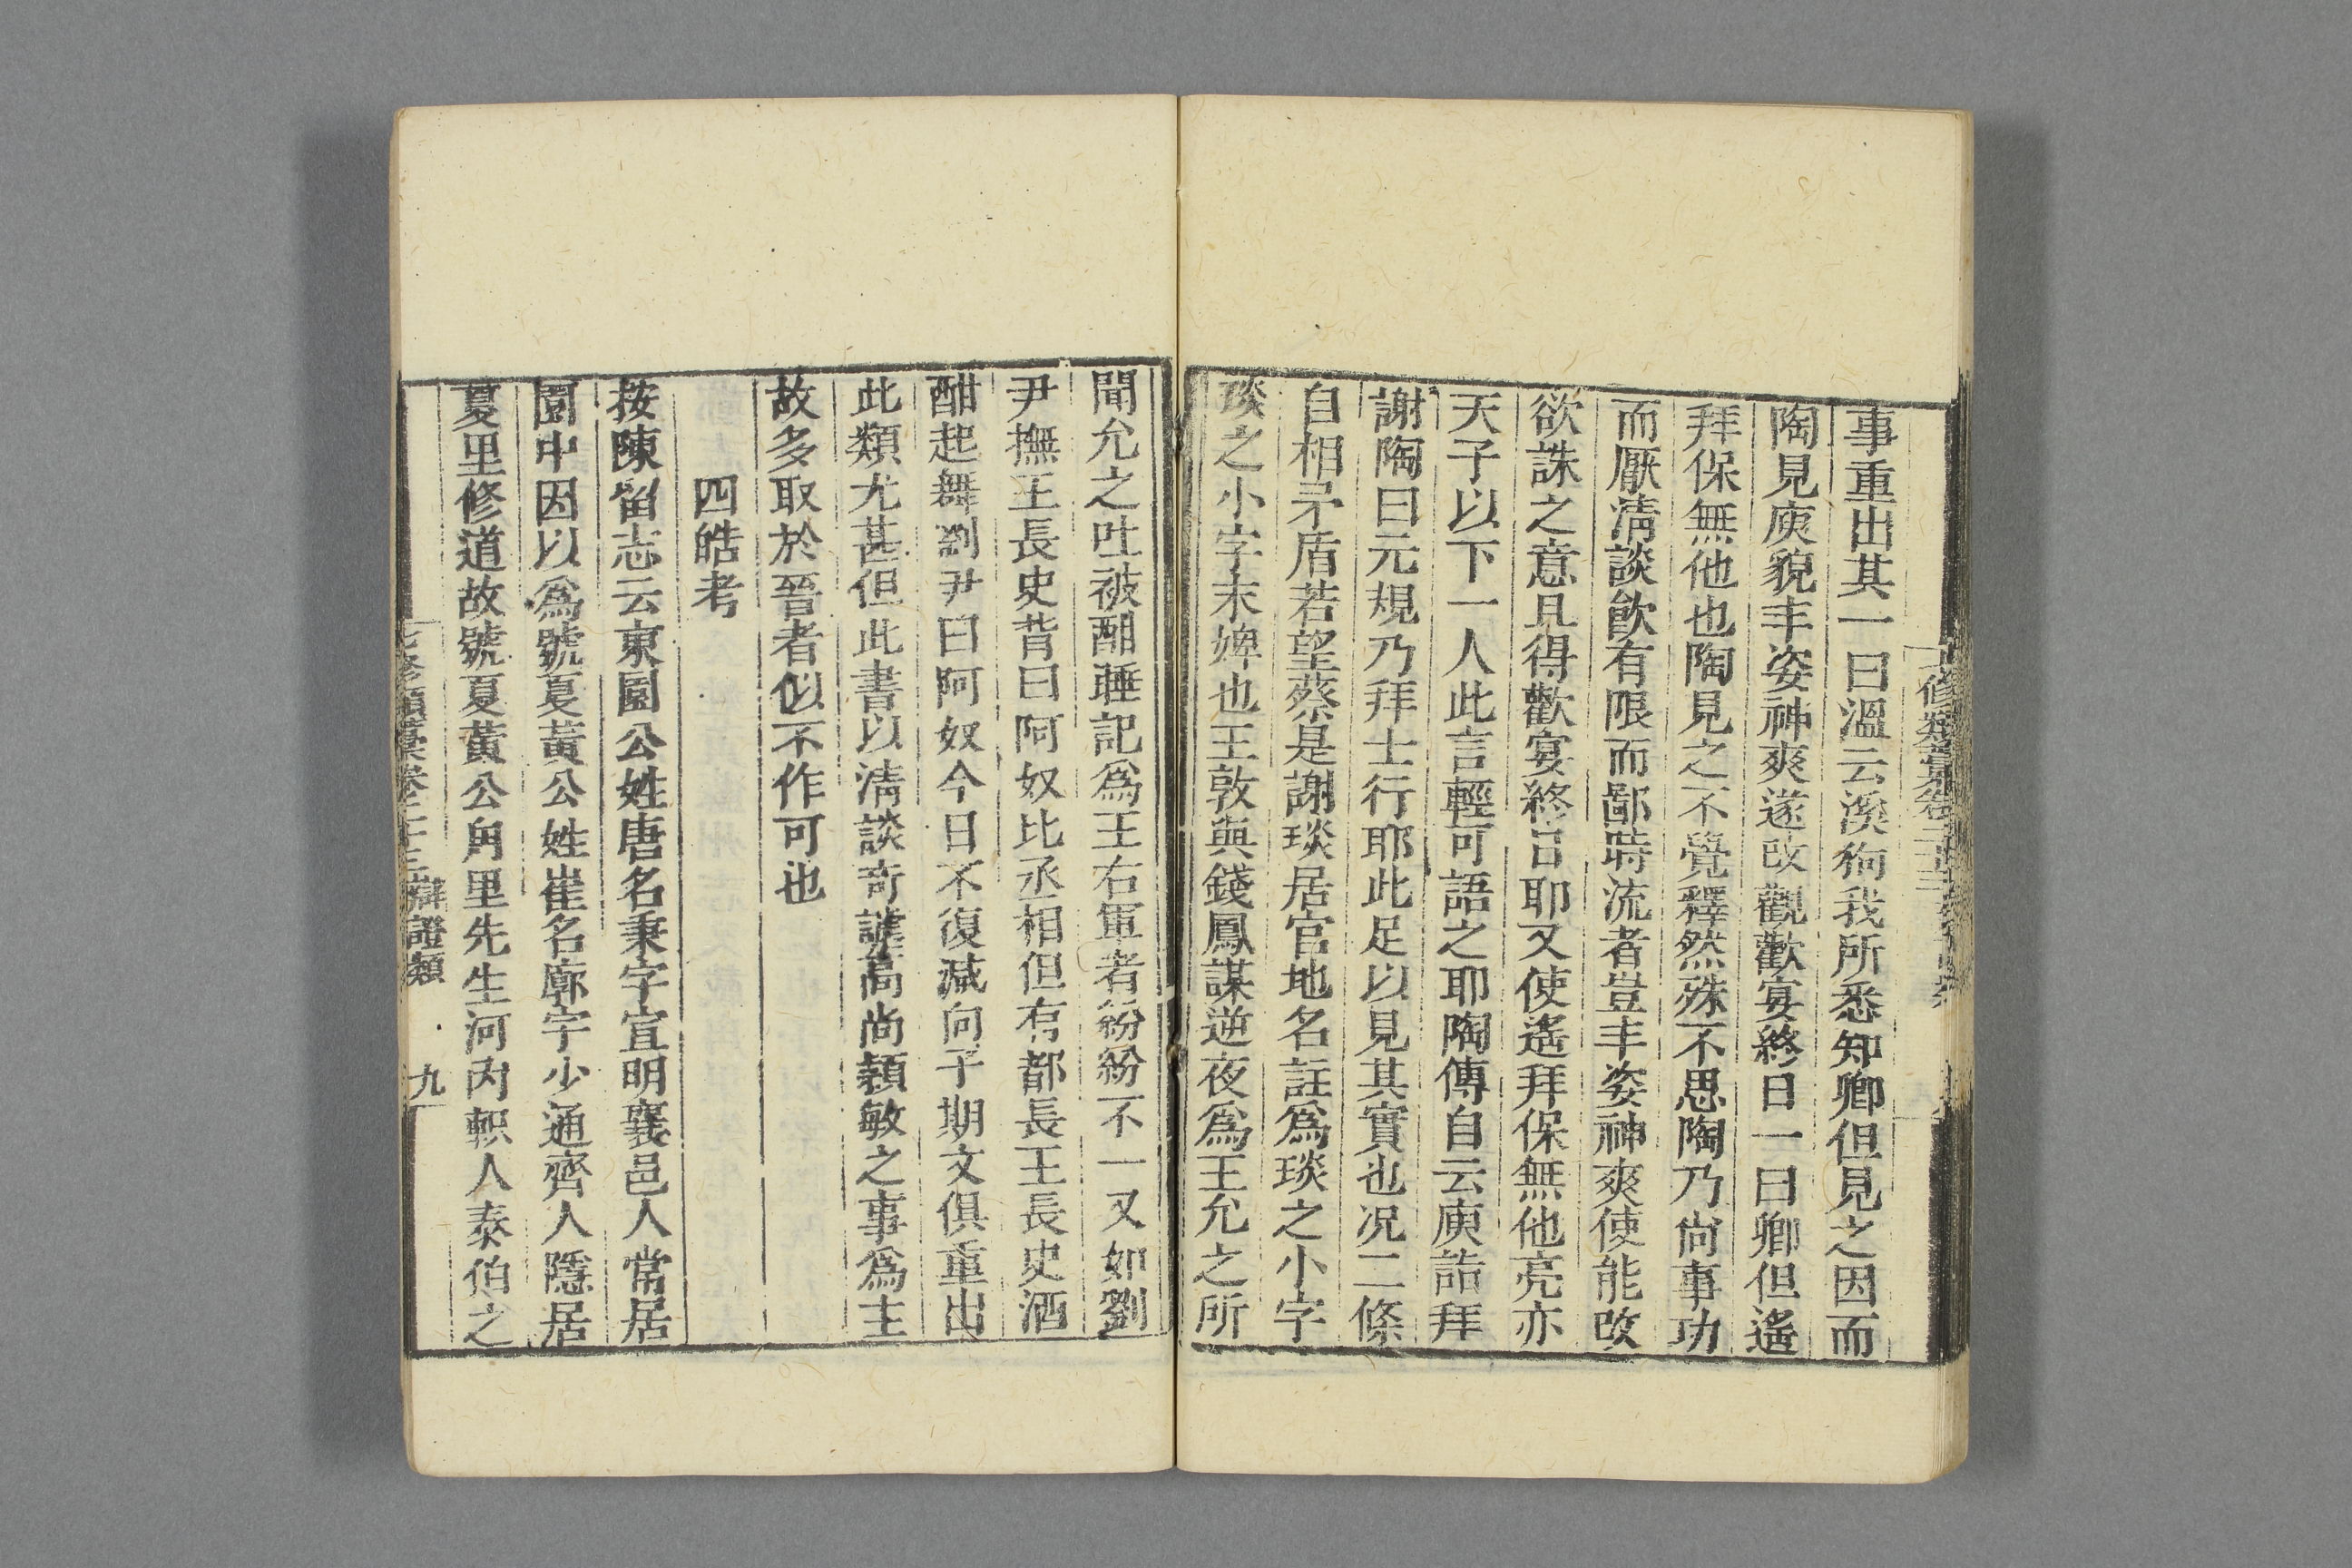 事重出其一曰溫云溪狗我所悉知卿但見之因而
陶見庾貌丰姿神爽遂改觀歡宴終日一曰卿但遙
拜保無他也陶見之不覺釋然殊不思陶乃尚事功
而厭清談飲有限而鄙時流者豈丰姿神爽使能改
欲誅之意且得歡宴終日耶又使遙拜保無他亮亦
天子以下一人此言輕可語之耶陶傳自云庾詣拜
謝陶曰元規乃拜士行耶此足以見其實也况二條
自相矛盾若望蔡是謝琰居官地名註爲琰之小字
琰之小字末婢也王敦與錢鳳謀逆夜爲王允之所
聞允之吐被酣睡記爲王右軍者紛紛不一又如劉
尹撫王長史背曰阿奴比丞相但有都長王長史酒
酣起舞劉尹曰阿奴今日不復减向子期文俱重出
此類尤甚但此書以清談奇謔高尚穎敏之事爲主
故多取於晉者似不作可也
四皓考
按陳留志云東園公姓唐名秉字宣明襄邑人常居
園中因以爲號夏黃公姓崔名廓字少通齊人隱居
夏里修道故號夏黃公甪里先生河内軹人泰伯之
七修類藁卷二十三 辯證類 九